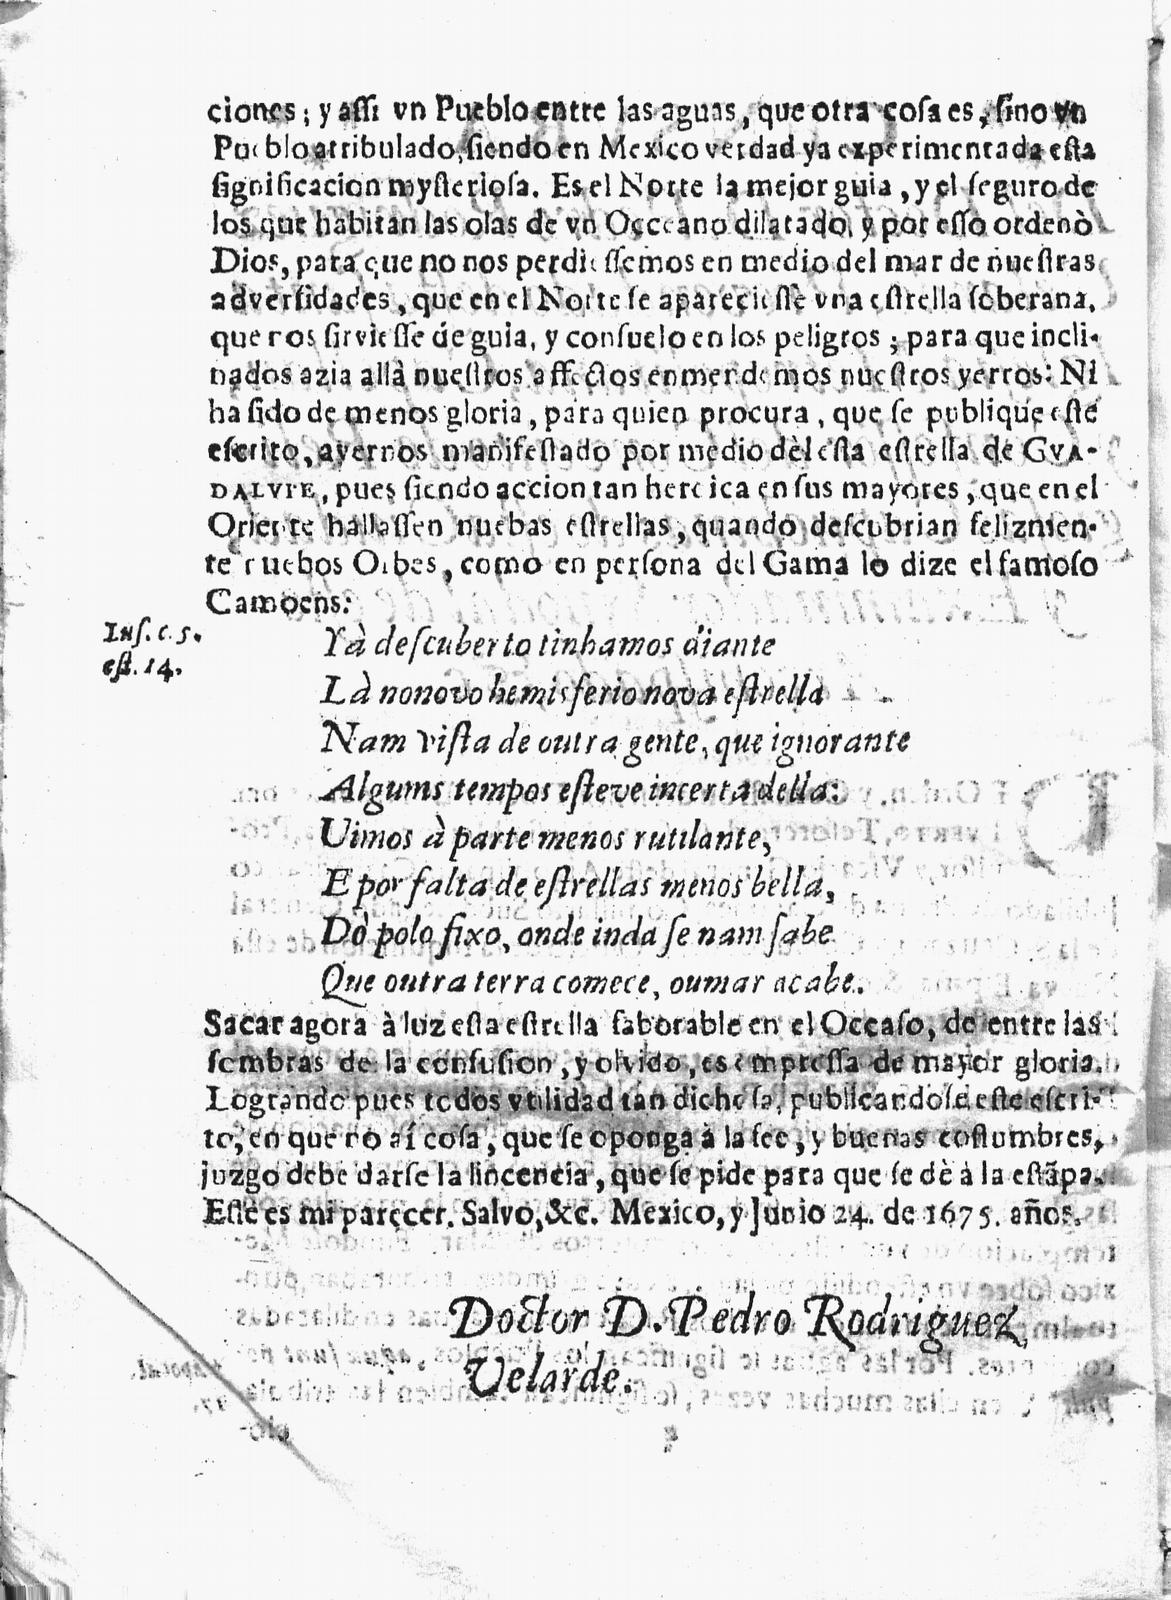 ciones; y assi vn Pueblo entre las aguas, que otra cosa es, sino vn
Pueblo atribulado, siendo en Mexico verdad ya experimentada esta
significacion mysteriosa. Es el Norte la mejor guia, y el seguro de
los que habitan las olas de vn Occeano dilatado, y por esso ordenò
Dios, para que no nos perdiessemos en medio del mar de nuestras
adversidades, que en el Norte se apareciesse vna estrella soberana,
que nos sirviesse de guia, y consuelo en los peligros; para que incli-
nados azia allà nuestros affectos enmendemos nuestros yerros: Ni
ha sido de menos gloria, para quien procura, que se publique este
escrito, avernos manifestado por medio dèl esta estrella de GVA-
DALVPE, pues siendo accion tan heroica en sus mayores, que en el
Oriente hallassen nuebas estrellas, quando descubrian felizmen-
te nuebos Orbes, como en persona del Gama lo dize el famoso
Camoens:
Ins. c. 5.
est. 14.
Yà descuberto tinhamos diante
Là nonovo hemisferio nova estrella
Nam vista de outra gente, que ignorante
Algums tempos esteve incerta della:
Uimos à parte menos rutilante,
E por falta de estrellas menos bella,
Dò polo fixo, onde inda se nam sabe
Que outra terra comece, oumar acabe.
Sacar agora à luz esta estrella faborable en el Occaso, de entre las
sombras de la confusion, y olvido, es empressa de mayor gloria.
Logrando pues todos vtilidad tan dichosa, publicandose este escri-
to, en que no aì cosa, que se oponga à la fee, y buenas costumbres,
juzgo debe darse la lincencia, que se pide para que se dè à la estãpa.
Este es mi parecer. Salvo, &c. Mexico, y Junio 24. de 1675. años.
Doctor D. Pedro Rodriguez
Velarde.